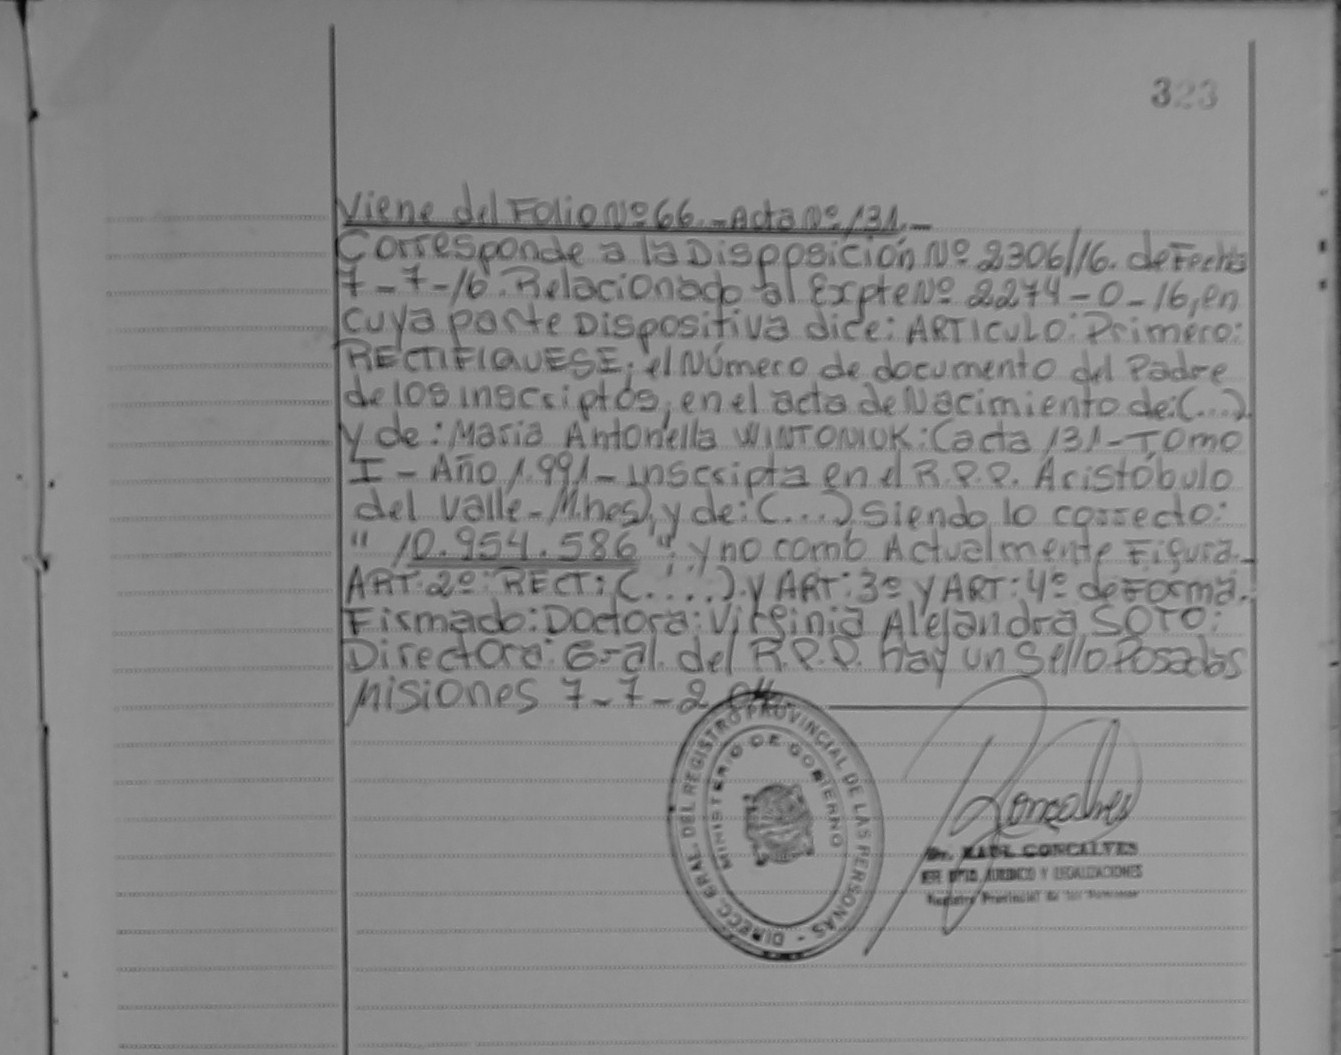 323
Viene del Folio Nº 66.- Acta Nº 131.-
Corresponde a la Disposición Nº 2306/16. de Fecha
7-7-16. Relacionado al Expte Nº 2274-0-16, en
cuya parte Dispositiva dice: ARTICULO: Primero:
RECTIFIQUESE; el Número de documento del Padre
de los inscriptos, en el acta de Nacimiento de: (...)
y de: Maria Antonella WINTONIUK: (acta 131-Tomo
I - Año 1.991- inscripta en el R.P.P. Aristóbulo
del Valle - Mnes), y de: (...) siendo lo correcto:
"10.954.586"; y no como Actualmente Figura.-
ART: 2º: RECT: (.....). y ART: 3º y ART: 4º de Forma.
Firmado: Doctora: Virginia Alejandra SOTO:
Directora: Gral. del R.P.P. hay un Sello Posadas
Misiones 7-7-2
DIRECC. GRAL. DEL REGISTRO PROVINCIAL DE LAS PERSONAS -
MINISTERIO DE GOBIERNO
Goncalves
Dr. RAUL GONCALVES
DPTO. JURIDICO Y LEGALIZACIONES
Registro Provincial de las Personas